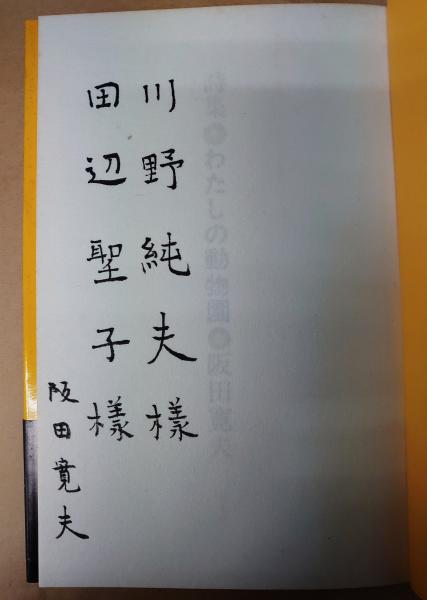 川野純夫様
田辺聖子様
阪田寛夫
詩集●わたしの動物園●阪田寛夫